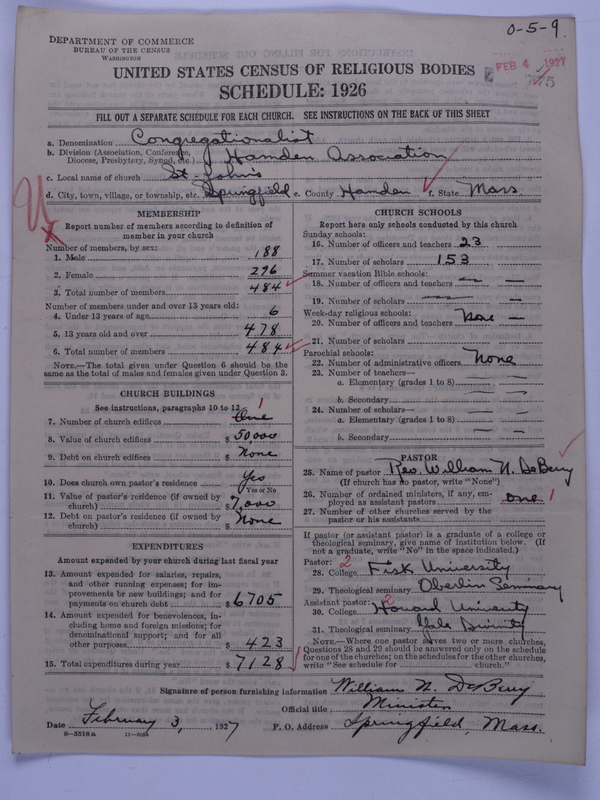 0-5-9.
DEPARTMENT OF COMMERCE
BUREAU OF THE CENSUS
WASHINGTON
FEB 4 1927
UNITED STATES CENSUS OF RELIGIOUS BODIES
SCHEDULE: 1926
FILL OUT A SEPARATE SCHEDULE FOR EACH CHURCH. SEE INSTRUCTIONS ON THE BACK OF THIS SHEET
a. Denomination Congregationalist
b. Division (Association, Conference, Diocese, Presbytery, Synod, etc.) Hamden Association
c. Local name of church St. John's
d. City, town, village, or township, etc. Springfield e. County Hamden f. State Mass.
MEMBERSHIP
Report number of members according to definition of
member in your church
Number of members, by sex:
1. Male 188
2. Female 296
3. Total number of members 484
Number of members under and over 13 years old:
4. Under 13 years of age 6
5. 13 years old and over 478
6. Total number of members 484
NOTE.—The total given under Question 6 should be the
same as the total of males and females given under Question 3.
CHURCH BUILDINGS
See instructions, paragraphs 10 to 12
7. Number of church edifices One 1
8. Value of church edifices $ 50,000
9. Debt on church edifices $ None
10. Does church own pastor's residence Yes
Yes or No
11. Value of pastor's residence (if owned by
church) $ 7,000
12. Debt on pastor's residence (if owned by
church) $ None
EXPENDITURES
Amount expended by your church during last fiscal year
13. Amount expended for salaries, repairs,
and other running expenses; for im-
provements or new buildings; and for
payments on church debt $ 6705
14. Amount expended for benevolences, in-
cluding home and foreign missions; for
denominational support; and for all
other purposes $ 423
15. Total expenditures during year $ 7128
CHURCH SCHOOLS
Report here only schools conducted by this church
Sunday schools:
16. Number of officers and teachers 23
17. Number of scholars 153
Summer vacation Bible schools:
18. Number of officers and teachers — —
19. Number of scholars — —
Week-day religious schools:
20. Number of officers and teachers None —
21. Number of scholars — —
Parochial schools:
22. Number of administrative officers None
23. Number of teachers—
a. Elementary (grades 1 to 8) — —
b. Secondary — —
24. Number of scholars—
a. Elementary (grades 1 to 8) — —
b. Secondary — —
PASTOR
25. Name of pastor Rev. William N. DeBerry
(If church has no pastor, write "None")
26. Number of ordained ministers, if any, em-
ployed as assistant pastors one 1
27. Number of other churches served by the
pastor or his assistants
If pastor (or assistant pastor) is a graduate of a college or
theological seminary, give name of institution below. (If
not a graduate, write "No" in the space indicated.)
Pastor: 2
28. College Fisk University
29. Theological seminary Oberlin Seminary
Assistant pastor: 2
30. College Howard University
31. Theological seminary Yale Divinity
NOTE.—Where one pastor serves two or more churches,
Questions 28 and 29 should be answered only on the schedule
for one of the churches; on the schedules for the other churches,
write "See schedule for church."
Signature of person furnishing information William N. DeBerry
Official title Minister
Date February 3, 1927 P. O. Address Springfield, Mass.
8—5518a 11—9084